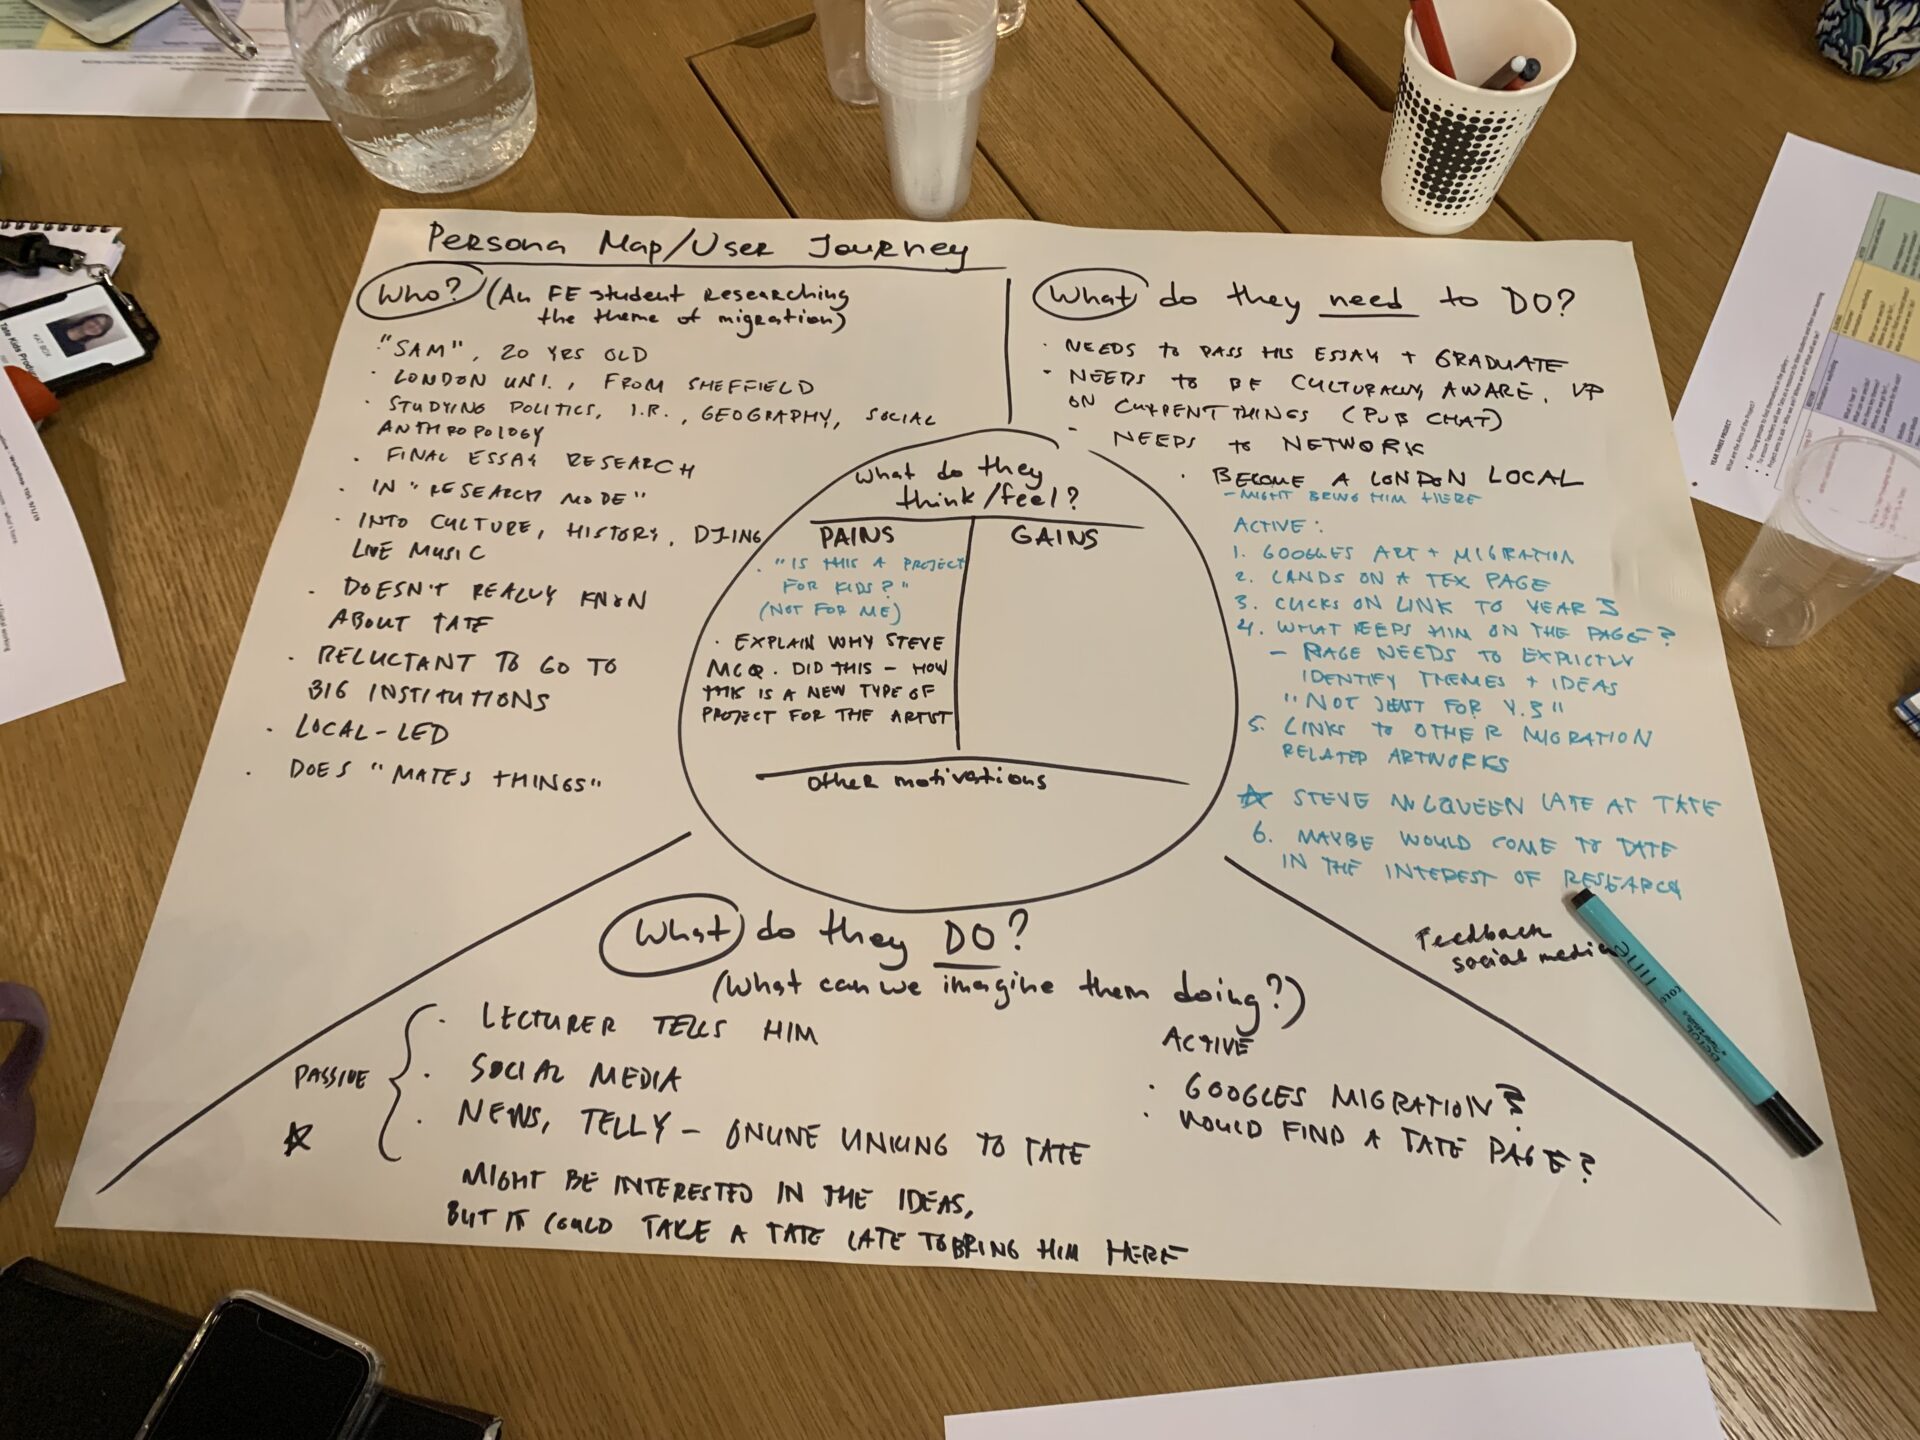 Persona Map/User Journey
Who? (An FE student researching
the theme of migration)
"SAM", 20 YRS OLD
· LONDON UNI., FROM SHEFFIELD
· STUDYING POLITICS, I.R., GEOGRAPHY, SOCIAL
ANTHROPOLOGY
· FINAL ESSAY RESEARCH
· IN "RESEARCH MODE"
· INTO CULTURE, HISTORY, DJING
LIVE MUSIC
· DOESN'T REALLY KNOW
ABOUT TATE
· RELUCTANT TO GO TO
BIG INSTITUTIONS
· LOCAL-LED
· DOES "MATES THINGS"
What do they need to DO?
· NEEDS TO PASS HIS ESSAY + GRADUATE
· NEEDS TO BE CULTURALLY AWARE, UP
ON CURRENT THINGS (PUB CHAT)
- NEEDS TO NETWORK
· BECOME A LONDON LOCAL
- MIGHT BRING HIM HERE
ACTIVE:
1. GOOGLES ART + MIGRATION
2. LANDS ON A TEX PAGE
3. CLICKS ON LINK TO YEAR 3
4. WHAT KEEPS HIM ON THE PAGE?
- PAGE NEEDS TO EXPLICTLY
IDENTIFY THEMES + IDEAS
"NOT JUST FOR Y.3"
5. LINKS TO OTHER MIGRATION
RELATED ARTWORKS
☆ STEVE McQUEEN LATE AT TATE
6. MAYBE WOULD COME TO TATE
IN THE INTEREST OF RESEARCH
Feedback
social media
What do they
think/feel?
PAINS
GAINS
· "IS THIS A PROJECT
FOR KIDS?"
(NOT FOR ME)
· EXPLAIN WHY STEVE
MCQ. DID THIS - HOW
THIS IS A NEW TYPE OF
PROJECT FOR THE ARTIST
Other motivations
What do they DO?
(What can we imagine them doing?)
PASSIVE
· LECTURER TELLS HIM
· SOCIAL MEDIA
· NEWS, TELLY - ONLINE LINKING TO TATE
☆
MIGHT BE INTERESTED IN THE IDEAS,
BUT IT COULD TAKE A TATE LATE TO BRING HIM HERE
ACTIVE
· GOOGLES MIGRATION?
· WOULD FIND A TATE PAGE?
YEAR THREE PROJECT